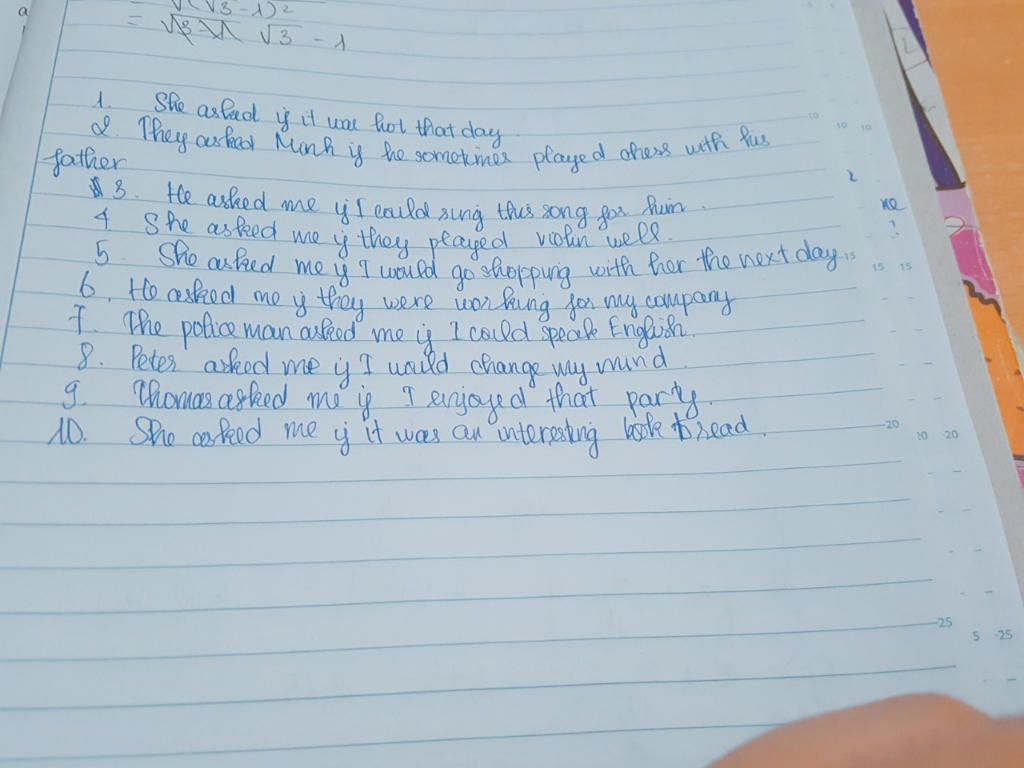 a
= √(√3-1)²
= √3 - 1
1. She asked if it was hot that day.
2. They asked Minh if he sometimes played chess with his
father
3. He asked me if I could sing this song for him.
4 She asked me if they played violin well.
5. She asked me if I would go shopping with her the next day
6. He asked me if they were working for my company
7. The police man asked me if I could speak English.
8. Peter asked me if I would change my mind.
9. Thomas asked me if I enjoyed that party.
10. She asked me if it was an interesting book to read.
10 10 10
15 15 15
20 20 20
25 5 25